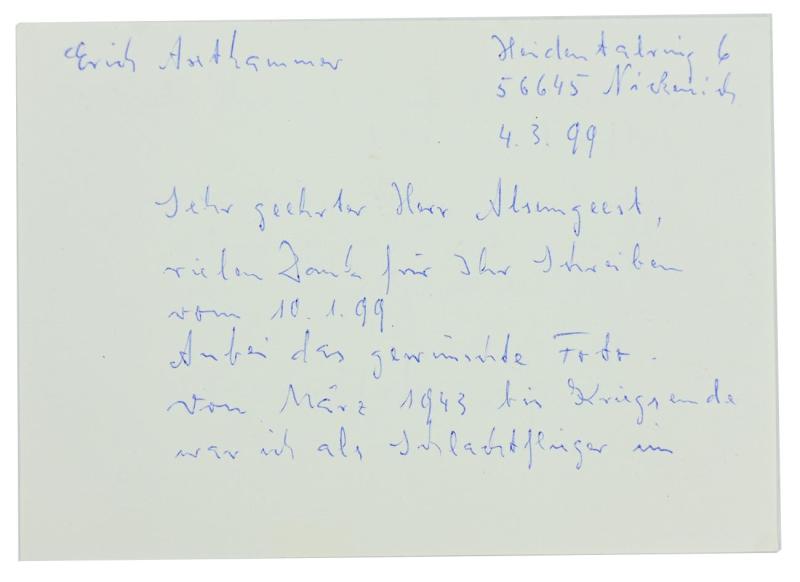 Erich Axthammer
Heidentalring 6
56645 Nickenich
4.3.99
Sehr geehrter Herr
vielen Dank für Ihr Schreiben
vom 10.1.99.
Anbei das gewünschte Foto.
Von März 1943 bis Kriegsende
war ich als Schlachtflieger im